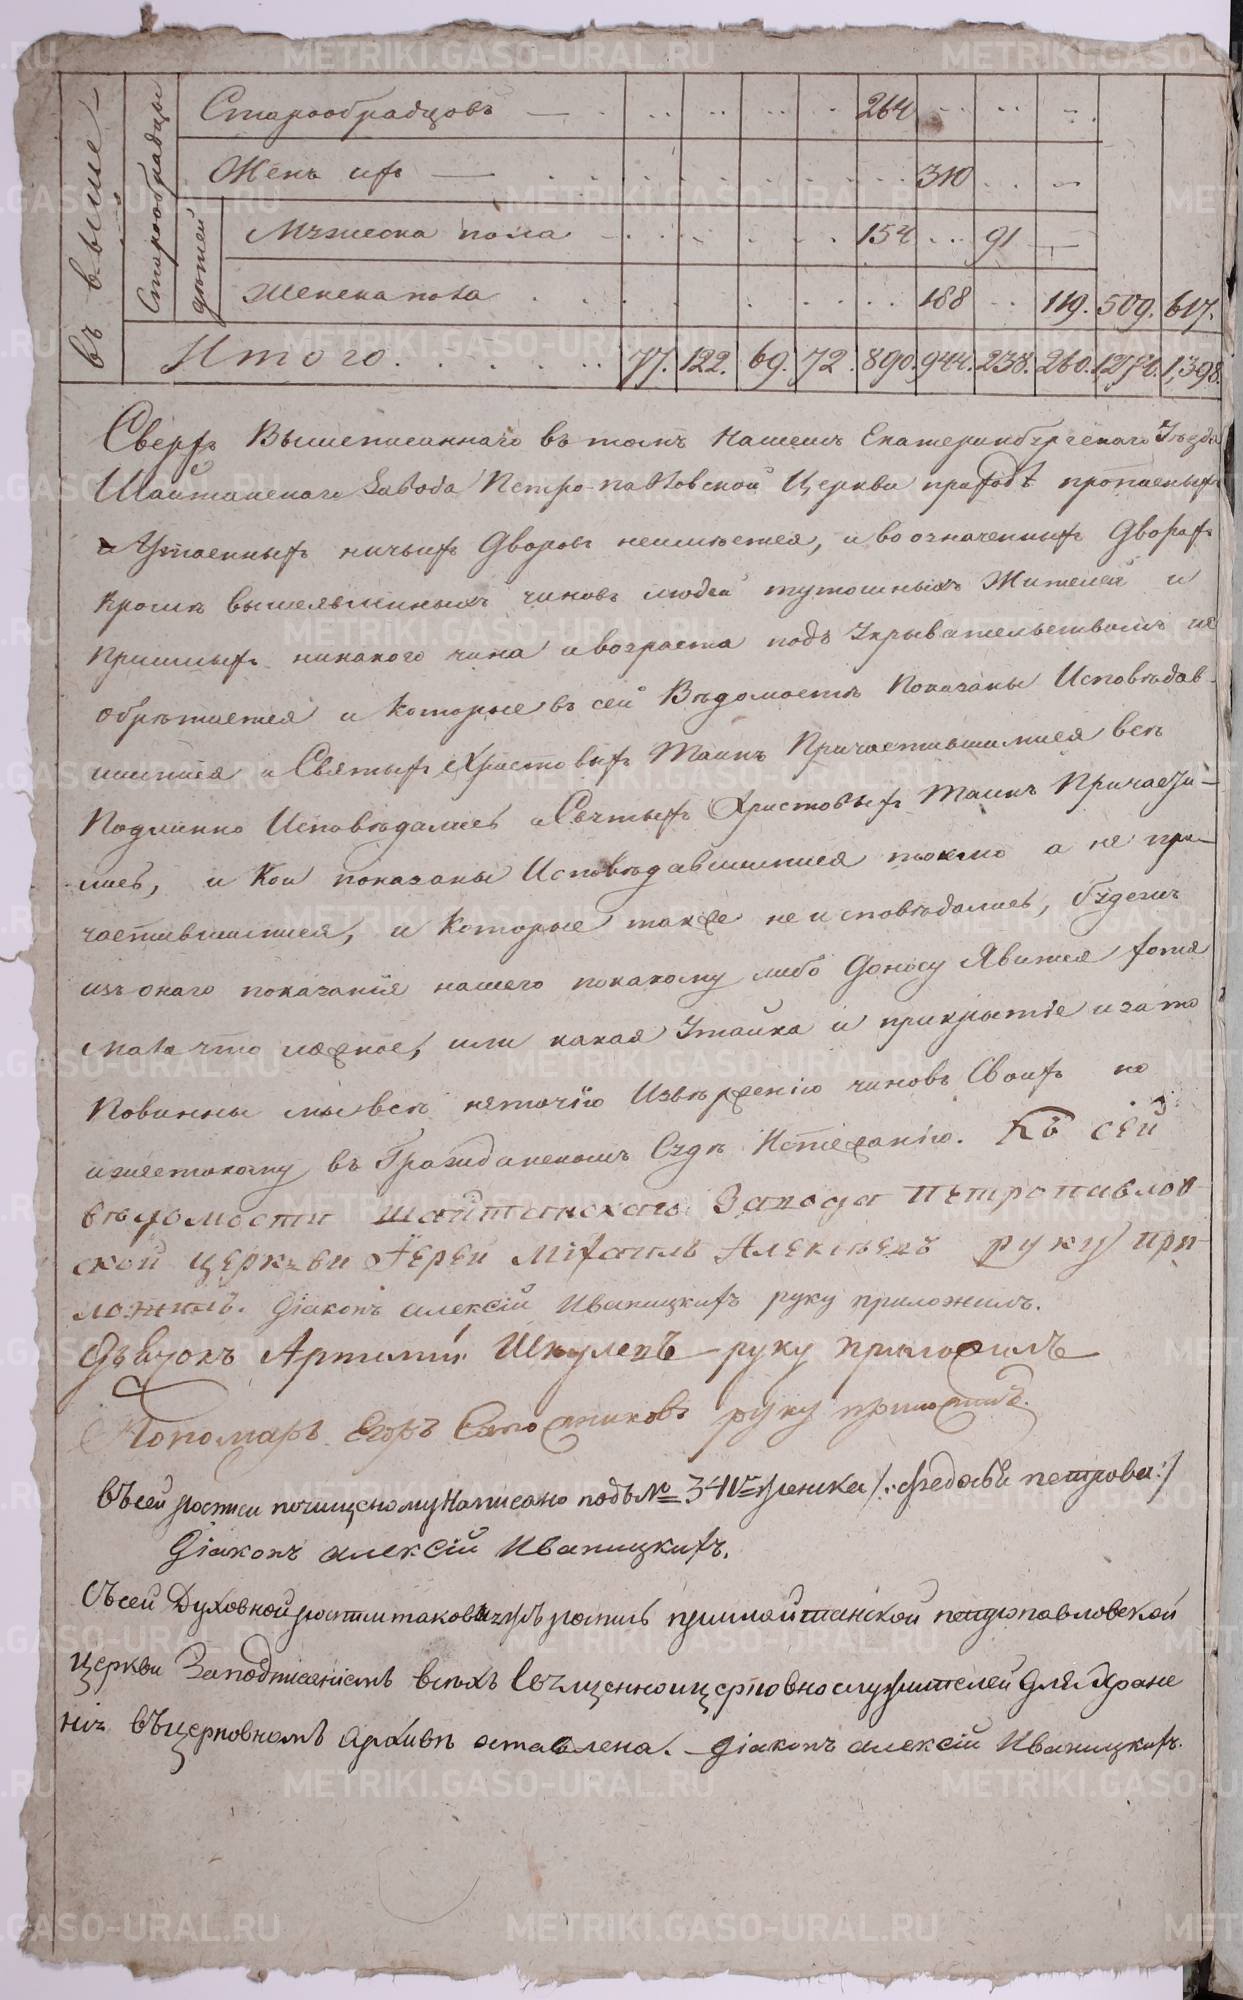 въ выше-
Старообрадцы
дѣтей
Старообрадцовъ — 264
Женъ ихъ — 310
Мужеска пола 154 91
Женска пола 188 119. 509. 617.
Итого 77. 122. 69. 72. 890. 944. 238. 260. 1,274. 1,398.
Сверхъ Вышеписаннаго въ томъ Нашемъ Екатеринбургскаго Уѣзда
Шайтанскаго Завода Петро-павловской Церкви приходѣ прописныхъ
и Утаенныхъ ничьихъ Дворовъ неимѣется, и во означенныхъ Дворахъ
Кромѣ вышеявленныхъ чиновъ людей тутошныхъ Жителей и
Пришлыхъ никакого чина и возраста подъ Укрывательствомъ не
обрѣтается и Которые въ сей Вѣдомости Показаны Исповѣдав-
шимися и Святыхъ Христовыхъ Таинъ Причастившимися всѣ
Подлинно Исповѣдались и Святыхъ Христовыхъ Таинъ Причасти-
лись, и Кои показаны Исповѣдавшимися токмо а не при-
частившимися, и Которые также не исповѣдались, будеже
изъ онаго показанія нашего покакому либо Доносу Явится хотя
мало что ложное, или какая Утайка и прикрытіе и за то
Повинны мы всѣ неточію Изверженію чиновъ Своихъ но
и жестокому въ Гражданскомъ Судѣ Истезанію. Къ сей
вѣдомости шайтанскаго Завода петропавлов-
ской церкви Іерей Михаилъ Алексѣевъ руку при-
ложилъ. Діаконъ алексій Иваницкихъ руку приложилъ.
Дьячокъ Артемій Шкулевъ руку приложилъ
Пономарь Егоръ Сапожниковъ руку приложилъ.
въ сей росписи почищеному написано подъ № 341 женка /: федосья петрова :/
Діаконъ алексій Иваницкихъ.
Съ сей Духовной росписи таковаяжъ роспись при шайтанской петропавловской
церкви За подписаніемъ всѣхъ Священноицерковнослужителей для Хране
нія въ церковномъ архивѣ оставлена. — діаконъ алексій Иваницкихъ.
METRIKI.GASO-URAL.RU